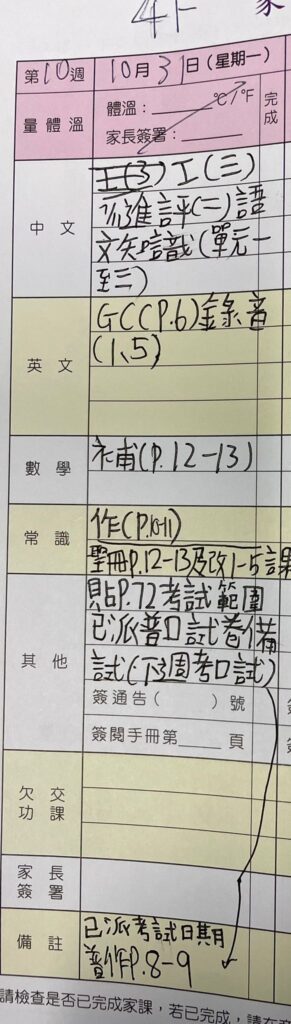 4下
家
第10週 10月31日(星期一)
量體溫 體溫：______ °C/°F 完成
家長簽署：______
中文
工(三)
派進評(二)語
文知識(單元一
至三)
英文
GC(P.6)錄音
(1、5)
數學
補(P.12-13)
常識
作(P.10-11)
聖冊P.12-13及改1-5課
其他
貼P.72考試範圍
已派普口試卷備
試(下週考口試)
簽通告( )號
簽閱手冊第____頁
欠交功課
家長簽署
備註
已派考試日期
普作P.8-9
請檢查是否已完成家課，若已完成，請在